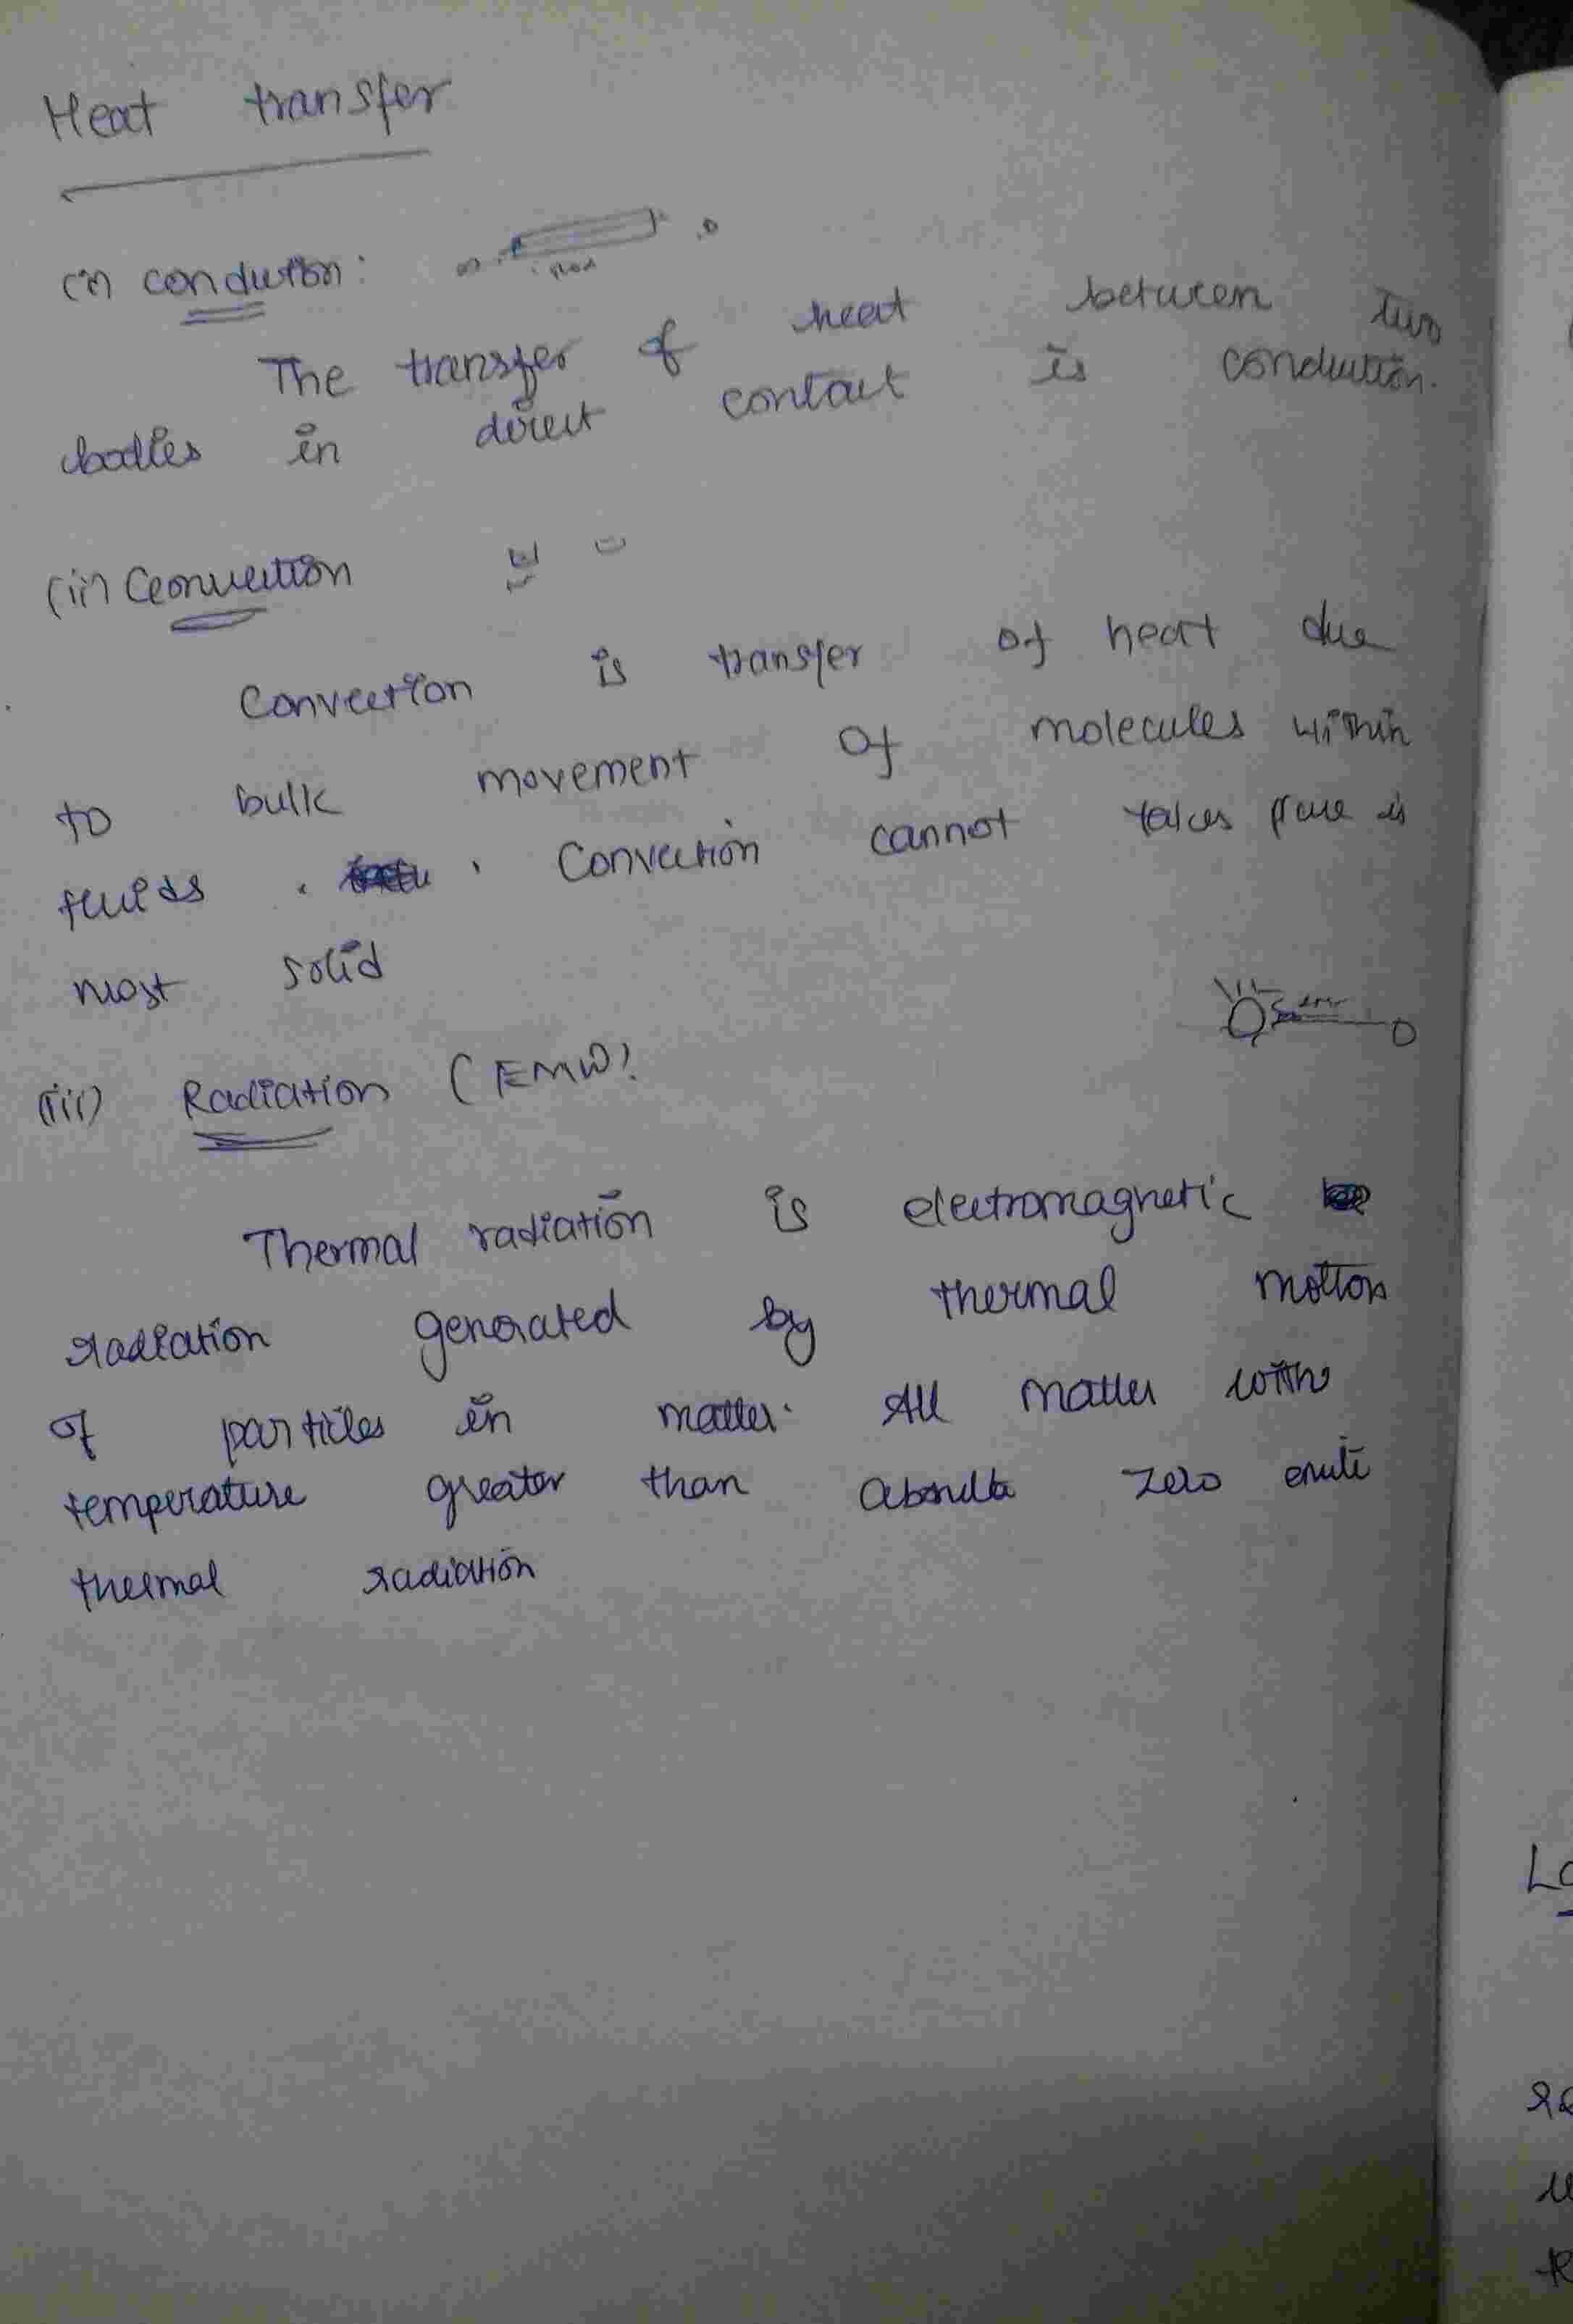 Heat transfer
(i) conduction:
The transfer of heat between two
bodies in direct contact is conduction.
(ii) Convection
Convection is transfer of heat due
to bulk movement of molecules within
fluids . . Convection cannot takes place in
most solid
(iii) Radiation (EMW)
Thermal radiation is electromagnetic
radiation generated by thermal motion
of particles in matter. All matter with
temperature greater than absolute zero emits
thermal radiation